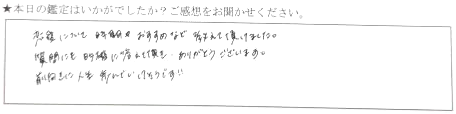 ★本日の鑑定はいかがでしたか？ご感想をお聞かせください。
恋愛について 時期や おすすめなど 教えて頂けました。
質問にも 的確に答えて頂き、ありがとうございます。
前向きに 人生 歩んでいけそうです!!